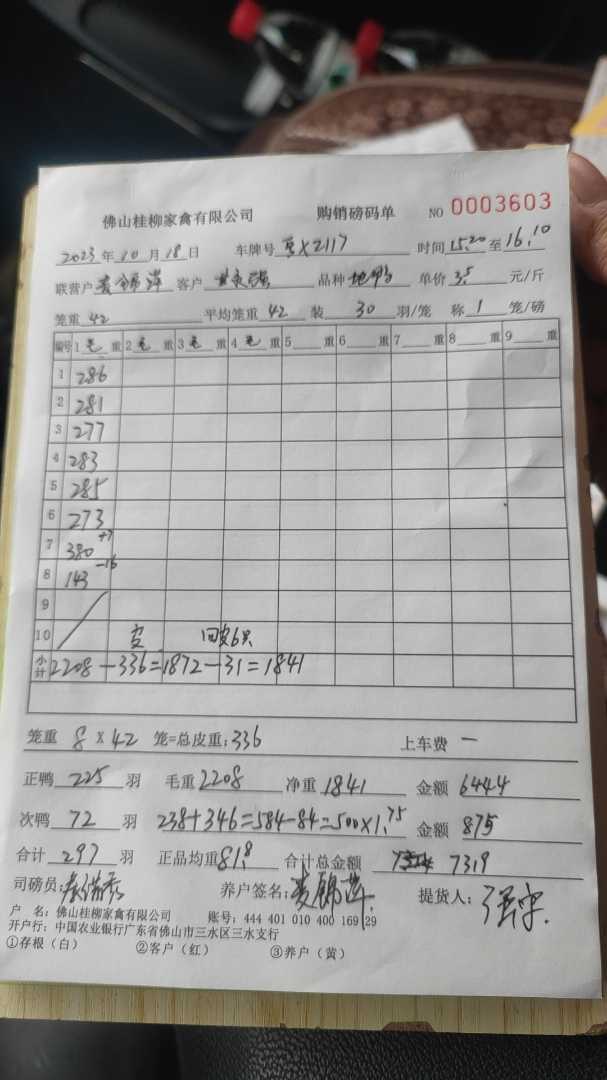 佛山桂柳家禽有限公司 购销磅码单 NO 0003603
2023年10月18日 车牌号 X2117 时间15.20至16.10
联营户 麦锦萍 客户 品种 地鸭 单价3.5元/斤
笼重 42 平均笼重 42 装 30 羽/笼 称 1 笼/磅
编号 1 毛 重 2 毛 重 3 毛 重 4 毛 重 5 重 6 重 7 重 8 重 9 重
1 286
2 281
3 277
4 283
5 285
6 273
7 380 +7
8 143 -16
9
10 皮 回皮6只
小计 2208-336=1872-31=1841
笼重 8×42 笼=总皮重:336 上车费 一
正鸭 225 羽 毛重 2208 净重 1841 金额 6444
次鸭 72 羽 238+346=584-84=500×1.75 金额 875
合计 297 羽 正品均重:81.8 合计总金额 7319
司磅员: 养户签名:麦锦萍 提货人:
户 名:佛山桂柳家禽有限公司 账号:444 401 010 400 169 29
开户行:中国农业银行广东省佛山市三水区三水支行
①存根(白) ②客户(红) ③养户(黄)